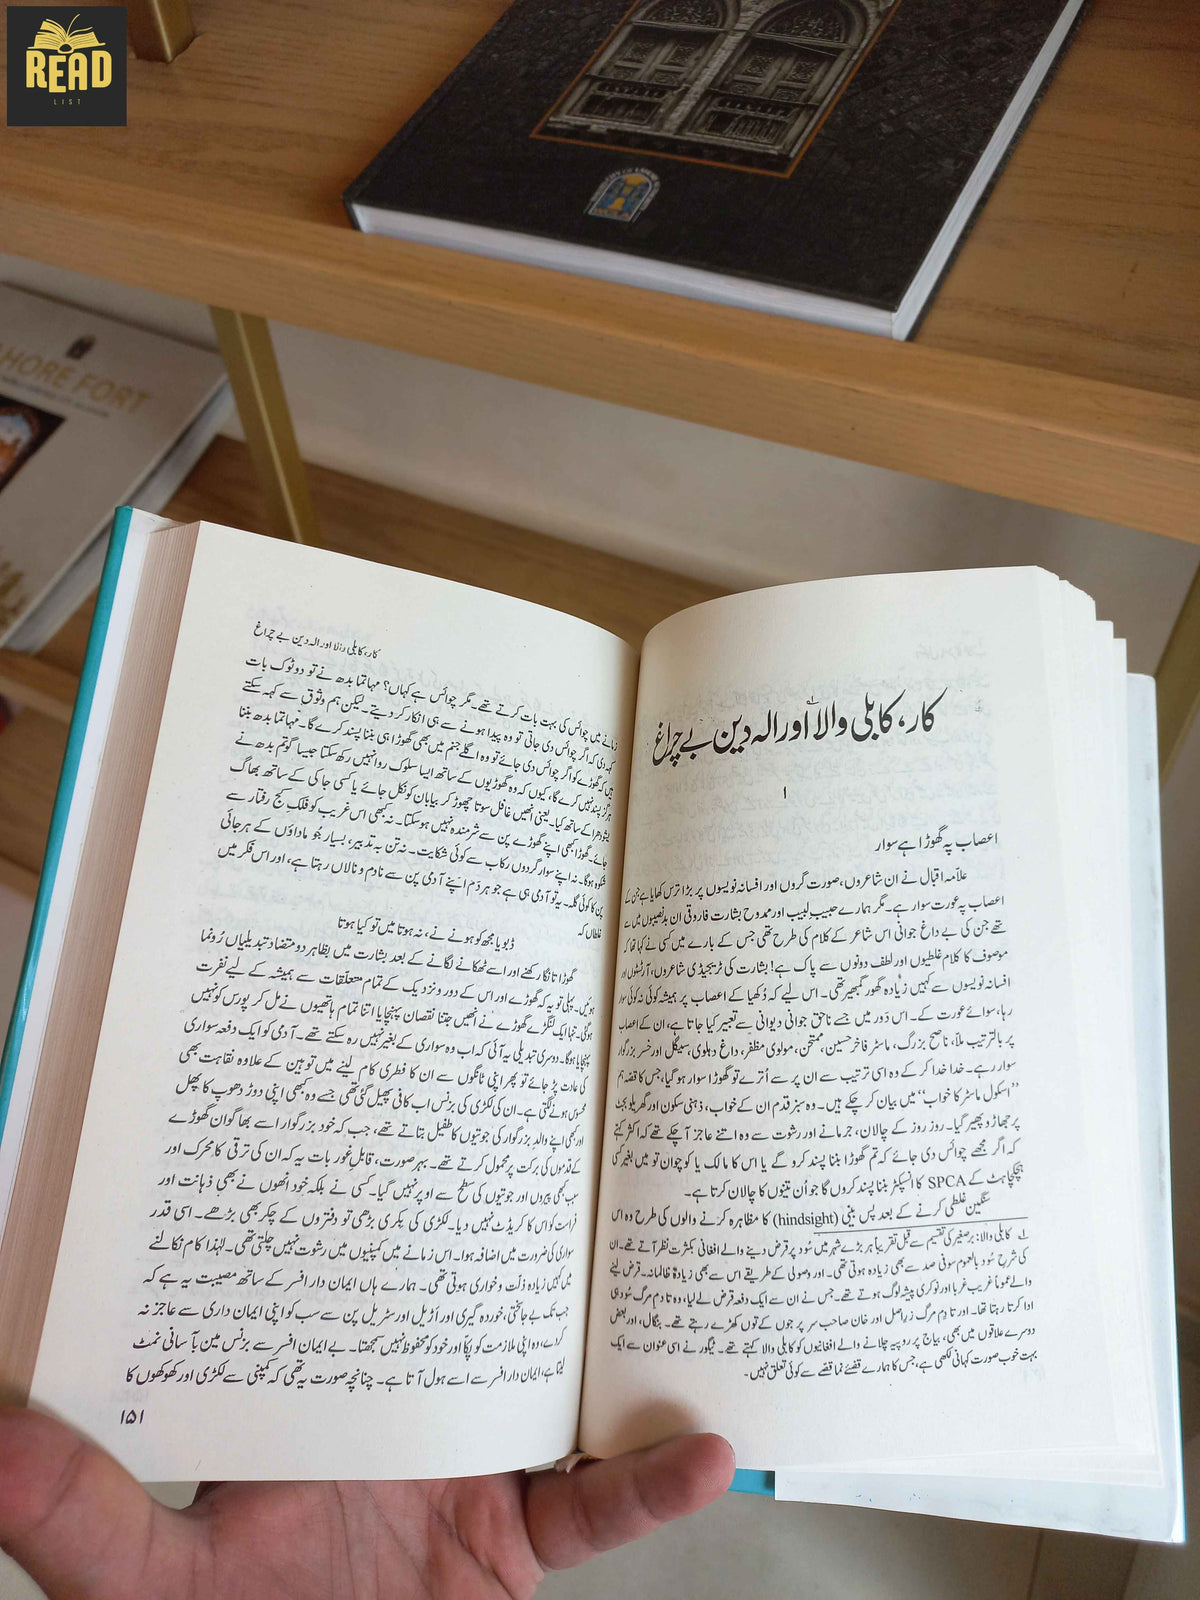 READ
LIST
HORE FORT
کار، کابلی والا اور الہ دین بے چراغ
۱
اعصاب پہ گھوڑا ہے سوار
علامہ اقبال نے ان شاعروں، صورت گروں اور افسانہ نویسوں پر بڑا ترس کھایا ہے جن کے
اعصاب پہ عورت سوار ہے۔ مگر ہمارے حبیبِ لبیب اور ممدوح بشارت فاروقی ان بدنصیبوں میں سے
تھے جن کی بے داغ جوانی اس شاعر کے کلام کی طرح تھی جس کے بارے میں کسی نے کہا تھا کہ
موصوف کا کلام غلطیوں اور لطف دونوں سے پاک ہے! بشارت کی ٹریجیڈی شاعروں، آرٹسٹوں اور
افسانہ نویسوں سے کہیں زیادہ گھور گمبھیر تھی۔ اس لیے کہ دُکھیا کے اعصاب پر ہمیشہ کوئی نہ کوئی سوار
رہا، سوائے عورت کے۔ اس دَور میں جسے ناحق جوانی دیوانی سے تعبیر کیا جاتا ہے، ان کے اعصاب
پر بالترتیب ملّا، ناصح بزرگ، ماسٹر فاخر حسین، ممتحن، مولوی مظفر، داغ دہلوی، سیگل اور خسر بزرگوار
سوار رہے۔ خدا خدا کر کے وہ اسی ترتیب سے ان پر سے اُترے تو گھوڑا سوار ہو گیا، جس کا قصہ ہم
”اسکول ماسٹر کا خواب“ میں بیان کر چکے ہیں۔ وہ سبز قدم ان کے خواب، ذہنی سکون اور گھریلو بجٹ
پر جھاڑو پھیر گیا۔ روز روز کے چالان، جرمانے اور رشوت سے وہ اتنے عاجز آ چکے تھے کہ اکثر کہتے
کہ اگر مجھے چوائس دی جائے کہ تم گھوڑا بننا پسند کرو گے یا اس کا مالک یا کوچوان تو میں بغیر کسی
ہچکچاہٹ کے SPCA کا انسپکٹر بننا پسند کروں گا جو اُن تینوں کا چالان کرتا ہے۔
سنگین غلطی کرنے کے بعد پس بینی (hindsight) کا مظاہرہ کرنے والوں کی طرح وہ اس
؎ کابلی والا: برصغیر کی تقسیم سے قبل تقریباً ہر بڑے شہر میں سُود پر قرض دینے والے افغانی بکثرت نظر آتے تھے۔ ان
کی شرحِ سُود بالعموم سوفی صد سے بھی زیادہ ہوتی تھی۔ اور وصولی کے طریقے اس سے بھی زیادہ ظالمانہ۔ قرض لینے
والے عموماً غریب غربا اور نوکری پیشہ لوگ ہوتے تھے۔ جس نے ان سے ایک دفعہ قرض لے لیا، وہ تا دمِ مرگ سُود ہی
ادا کرتا رہتا تھا۔ اور تا دمِ مرگ زرِ اصل اور خان صاحب سر پر جوں کے توں کھڑے رہتے تھے۔ بنگال، اور بعض
دوسرے علاقوں میں بھی، بیاج پر روپیہ چلانے والے افغانیوں کو کابلی والا کہتے تھے۔ ٹیگور نے اسی عنوان سے ایک
بہت خوب صورت کہانی لکھی ہے، جس کا ہمارے قضیے نما قصے سے کوئی تعلق نہیں۔
کار، کابلی والا اور الہ دین بے چراغ
زمانے میں چوائس کی بہت بات کرتے تھے۔ مگر چوائس ہے کہاں؟ مہاتما بدھ نے تو دو ٹوک بات
کہہ دی کہ اگر چوائس دی جاتی تو وہ پیدا ہونے سے ہی انکار کر دیتے۔ لیکن ہم وثوق سے کہہ سکتے
ہیں کہ گھوڑے کو اگر چوائس دی جائے تو وہ اگلے جنم میں بھی گھوڑا ہی بننا پسند کرے گا۔ مہاتما بدھ بننا
ہرگز پسند نہیں کرے گا، کیوں کہ وہ گھوڑیوں کے ساتھ ایسا سلوک روا نہیں رکھ سکتا جیسا گوتم بدھ نے
یشودھرا کے ساتھ کیا۔ یعنی انھیں غافل سوتا چھوڑ کر بیابان کو نکل جائے یا کسی جاکی کے ساتھ بھاگ
جائے۔ گھوڑا کبھی اپنے گھوڑے پن سے شرمندہ نہیں ہو سکتا۔ نہ کبھی اس غریب کو فلکِ کج رفتار سے
شکوہ ہوگا۔ نہ اپنے سوارِ گردوں رکاب سے کوئی شکایت۔ نہ تن بہ تدبیر، بسیار جُو ماداؤں کے ہرجائی
پن کا کوئی گلہ۔ یہ تو آدمی ہی ہے جو ہر دَم اپنے آدمی پن سے نادم و نالاں رہتا ہے، اور اس فکر میں
غلطاں کہ
ڈبویا مجھ کو ہونے نے، نہ ہوتا میں تو کیا ہوتا
گھوڑا تانگا رکھنے اور اسے ٹھکانے لگانے کے بعد بشارت میں بظاہر دو متضاد تبدیلیاں رُونما
ہوئیں۔ پہلی تو یہ کہ گھوڑے اور اس کے دور و نزدیک کے تمام متعلقات سے ہمیشہ کے لیے نفرت
ہو گئی۔ تنہا ایک لنگڑے گھوڑے نے انھیں جتنا نقصان پہنچایا اتنا تمام ہاتھیوں نے مل کر پورس کو نہیں
پہنچایا ہوگا۔ دوسری تبدیلی یہ آئی کہ اب وہ سواری کے بغیر نہیں رہ سکتے تھے۔ آدمی کو ایک دفعہ سواری
کی عادت پڑ جائے تو پھر اپنی ٹانگوں سے ان کا فطری کام لینے میں توہین کے علاوہ نقاہت بھی
محسوس ہونے لگتی ہے۔ ان کی لکڑی کی بزنس اب کافی پھیل گئی تھی جسے وہ کبھی اپنی دوڑ دھوپ کا پھل
اور کبھی اپنے والدِ بزرگوار کی جوتیوں کا طفیل بتاتے تھے، جب کہ خود بزرگوار اسے بھاگوان گھوڑے
کے قدموں کی برکت پر محمول کرتے تھے۔ بہر صورت، قابلِ غور بات یہ کہ ان کی ترقی کا محرک اور
سبب کبھی پیروں اور جوتیوں کی سطح سے اوپر نہیں گیا۔ کسی نے بلکہ خود انھوں نے بھی ذہانت اور
فراست کو اس کا کریڈٹ نہیں دیا۔ لکڑی کی بِکری بڑھی تو دفتروں کے چکر بھی بڑھے۔ اسی قدر
سواری کی ضرورت میں اضافہ ہوا۔ اس زمانے میں کمپنیوں میں رشوت نہیں چلتی تھی۔ لہٰذا کام نکالنے
میں کہیں زیادہ ذلّت و خواری ہوتی تھی۔ ہمارے ہاں ایمان دار افسر کے ساتھ مصیبت یہ ہے کہ
جب تک بے جا سختی، خوردہ گیری اور اَڑیل اور سڑیل پن سے سب کو اپنی ایمان داری سے عاجز نہ
کر دے، وہ اپنی ملازمت کو پکّا اور خود کو محفوظ نہیں سمجھتا۔ بے ایمان افسر سے بزنس مین بآسانی نمٹ
لیتا ہے، ایمان دار افسر سے اسے ہول آتا ہے۔ چنانچہ صورت یہ تھی کہ کمپنی سے لکڑی اور کھوکھوں کا
۱۵۱